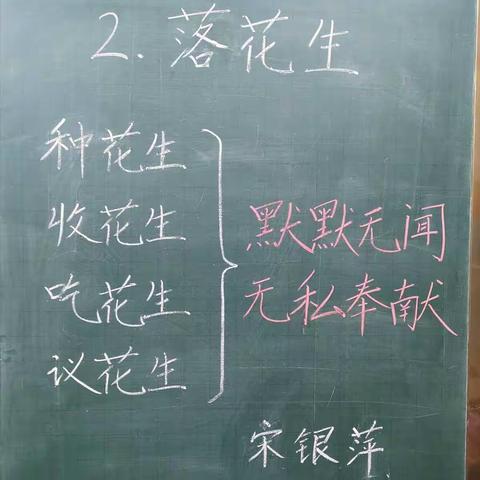 2.落花生
种花生
收花生
吃花生
议花生
默默无闻
无私奉献
宋银萍